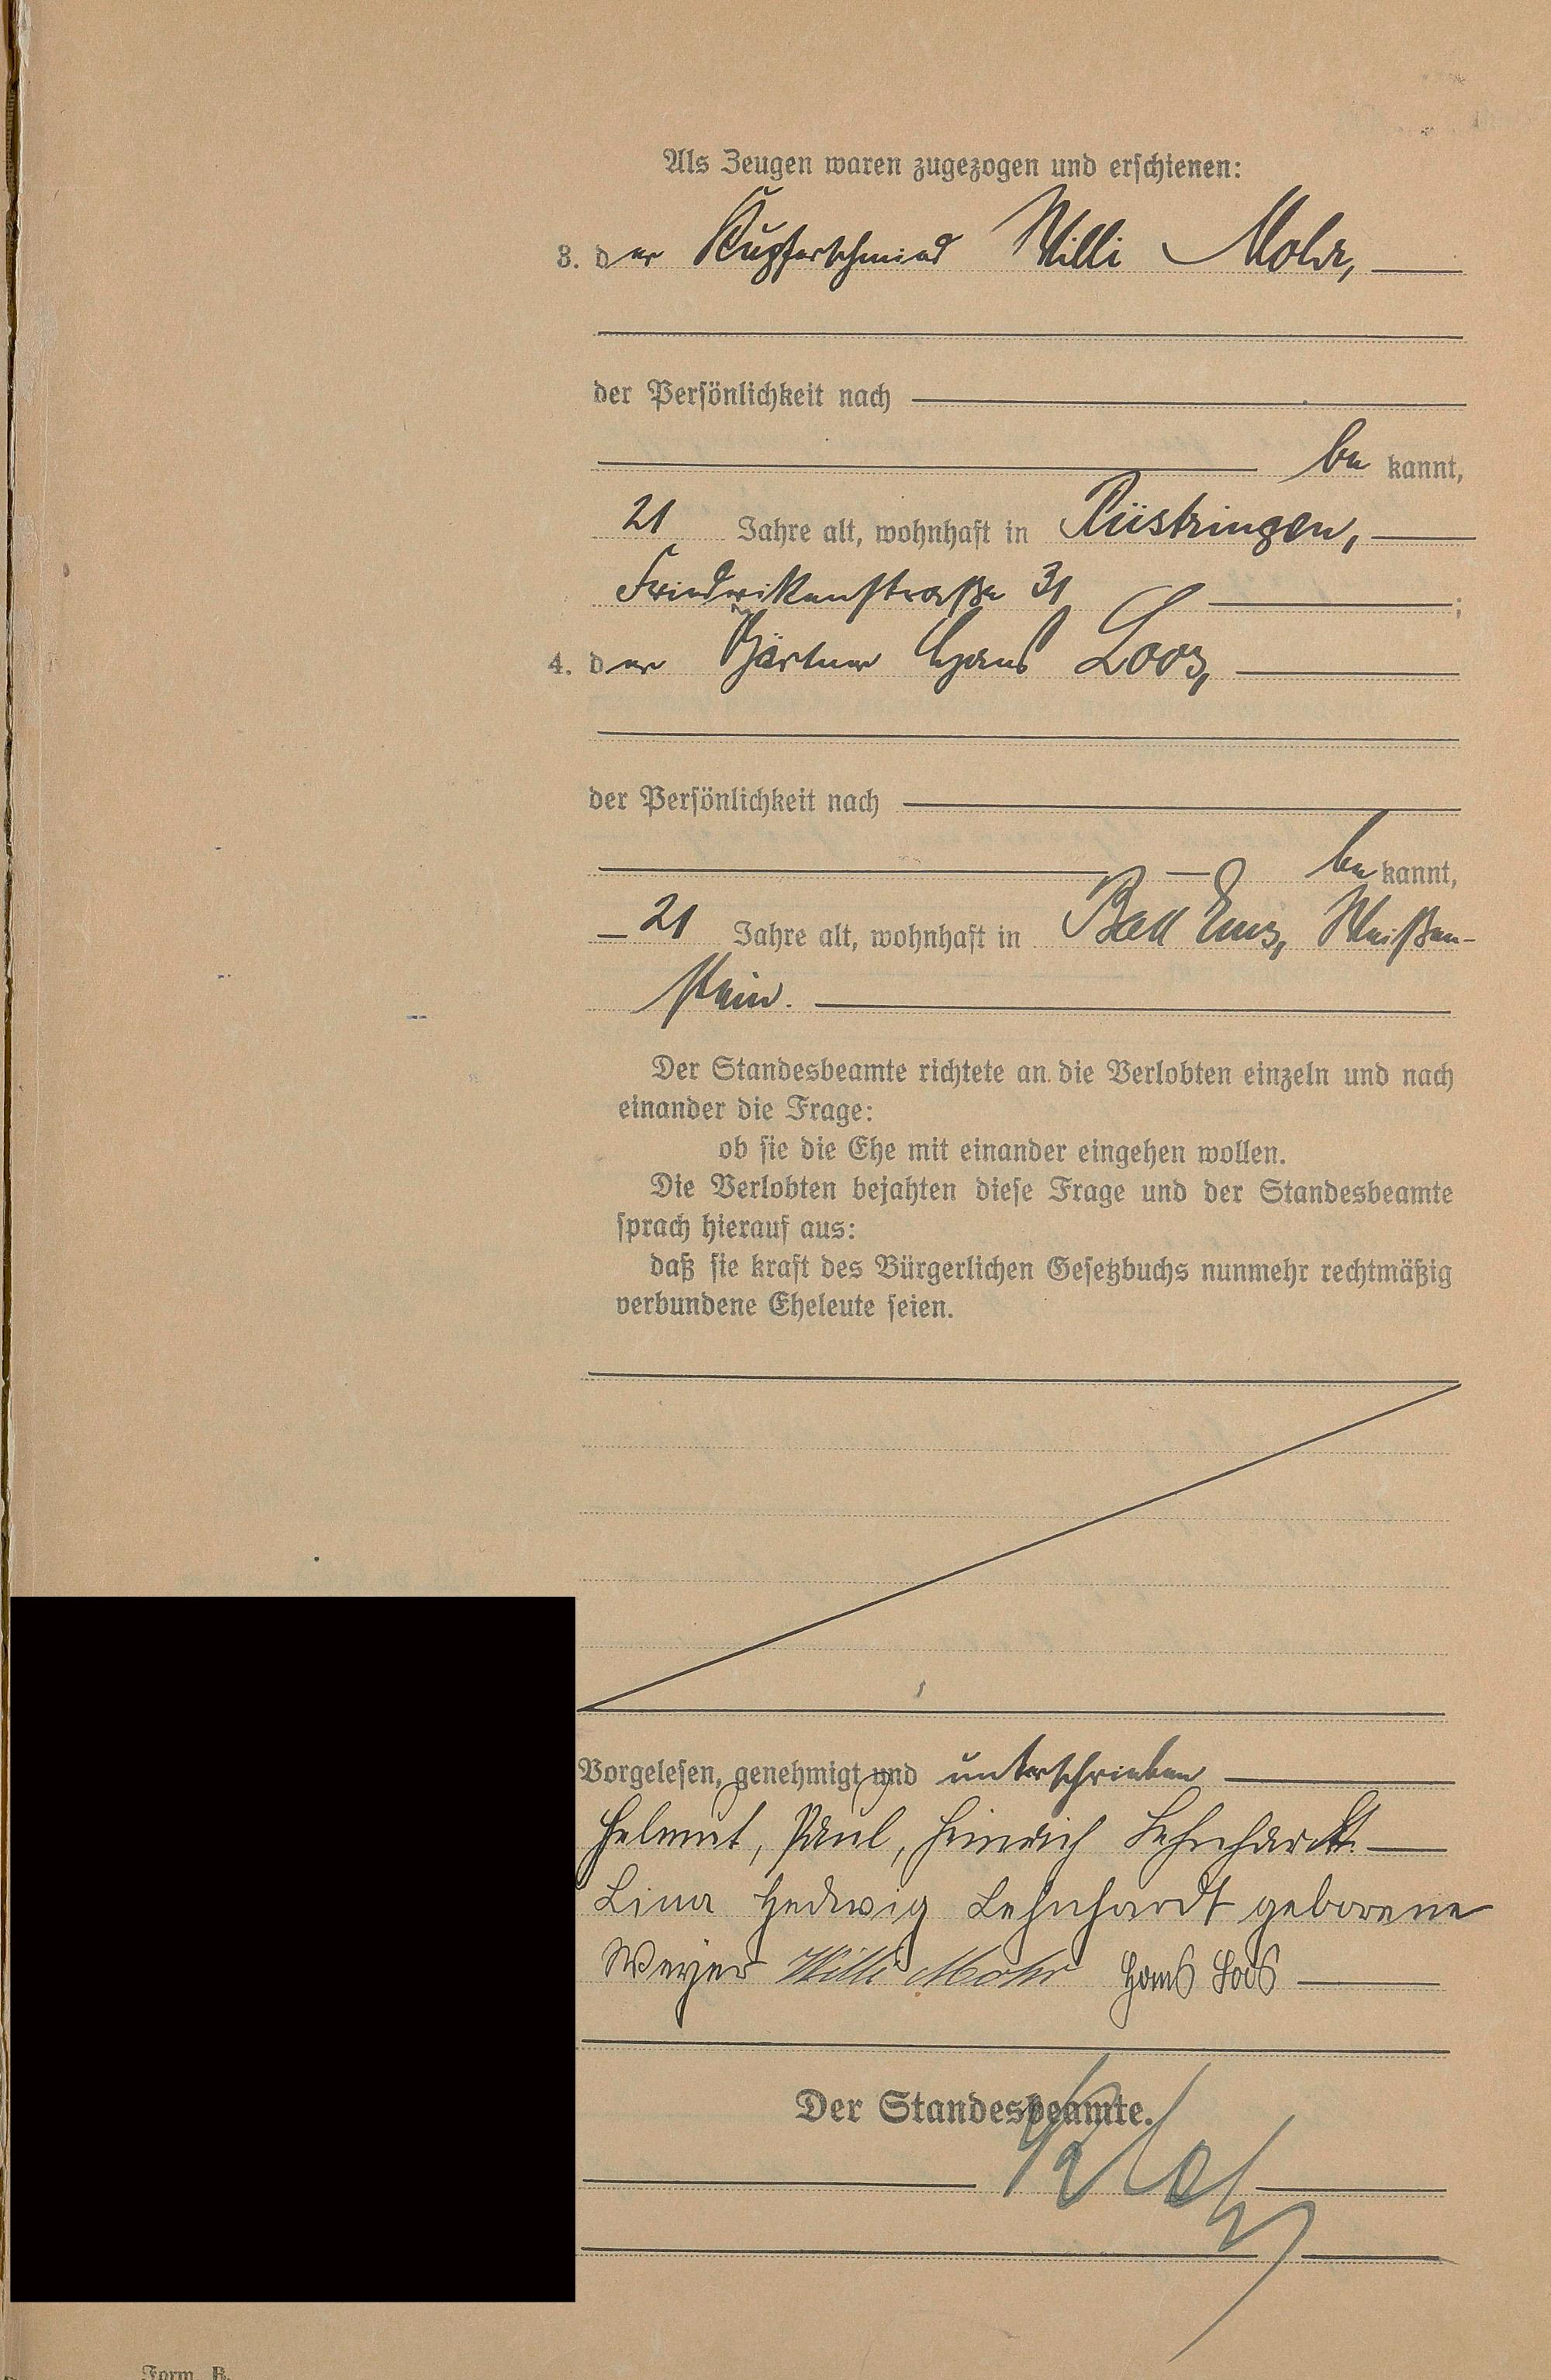 Als Zeugen waren zugezogen und erschienen:
3. der Kupferschmied Willi Mohr,
der Persönlichkeit nach
be kannt,
21 Jahre alt, wohnhaft in Rüstringen,
Friedrikenstraße 31 ;
4. der Gärtner Hans Loos,
der Persönlichkeit nach
be kannt,
21 Jahre alt, wohnhaft in Bad Ems, Weißen-
stein.
Der Standesbeamte richtete an die Verlobten einzeln und nach
einander die Frage:
ob sie die Ehe mit einander eingehen wollen.
Die Verlobten bejahten diese Frage und der Standesbeamte
sprach hierauf aus:
daß sie kraft des Bürgerlichen Gesetzbuchs nunmehr rechtmäßig
verbundene Eheleute seien.
Vorgelesen, genehmigt und unterschrieben
Helmut, Paul, Hinrich Lehnhardt.
Lina Hedwig Lehnhardt geborene
Weyer Willi Mohr Hans Loos
Der Standesbeamte.
Form. B.